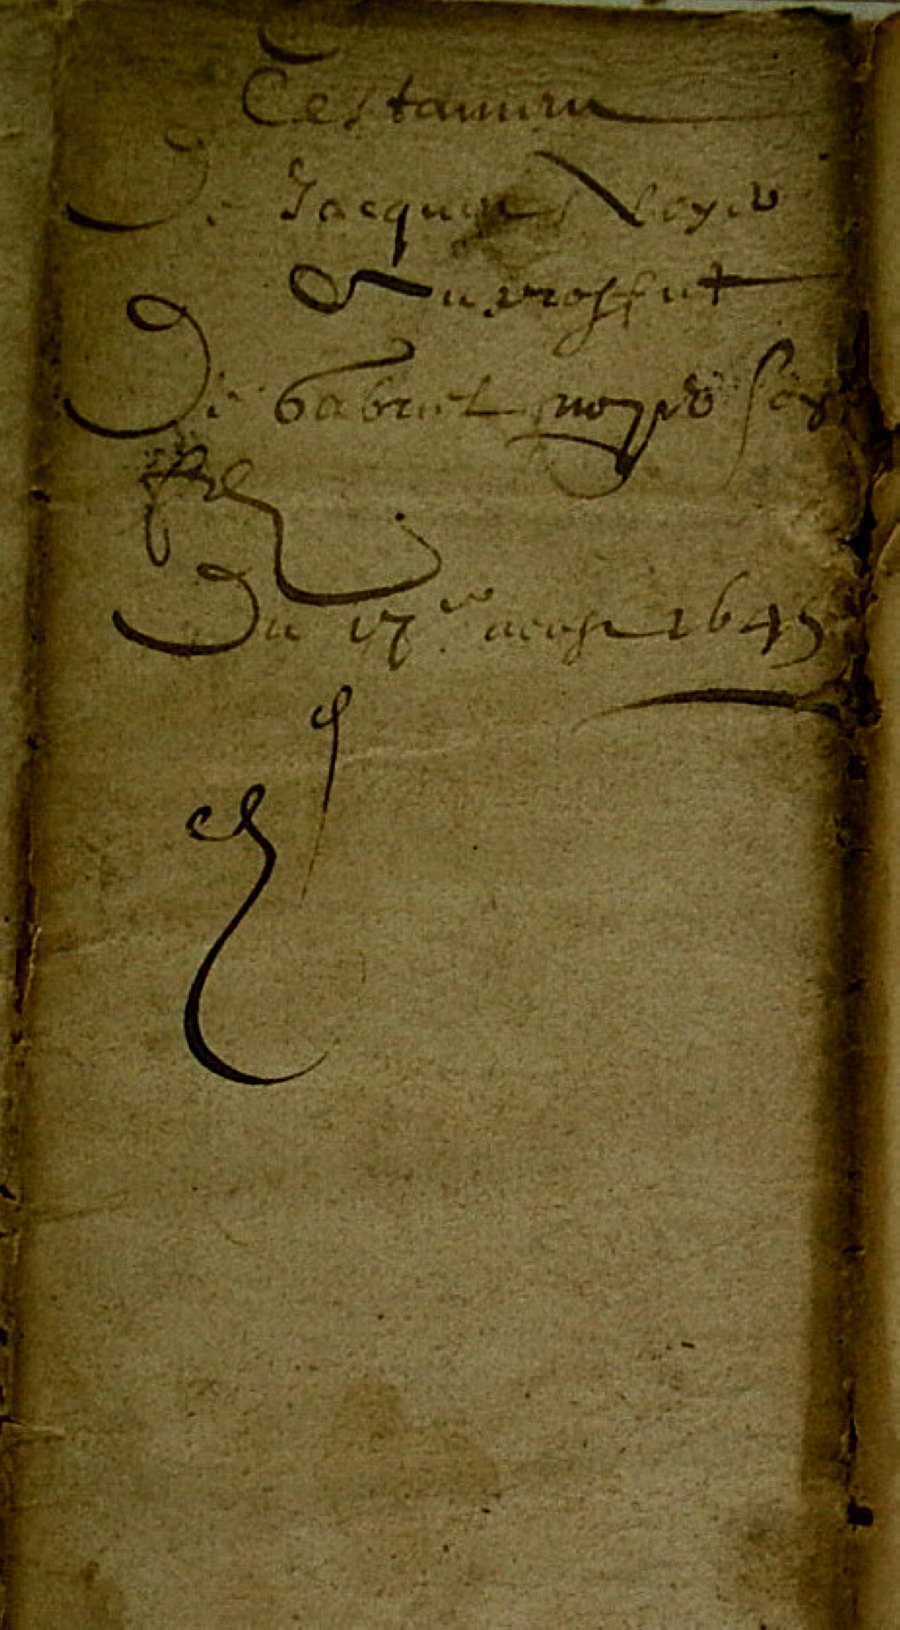 Testament
De Jacques Noyer
Au proffit
De Gabriel noyer son
filz
Du 17e aoust 1645